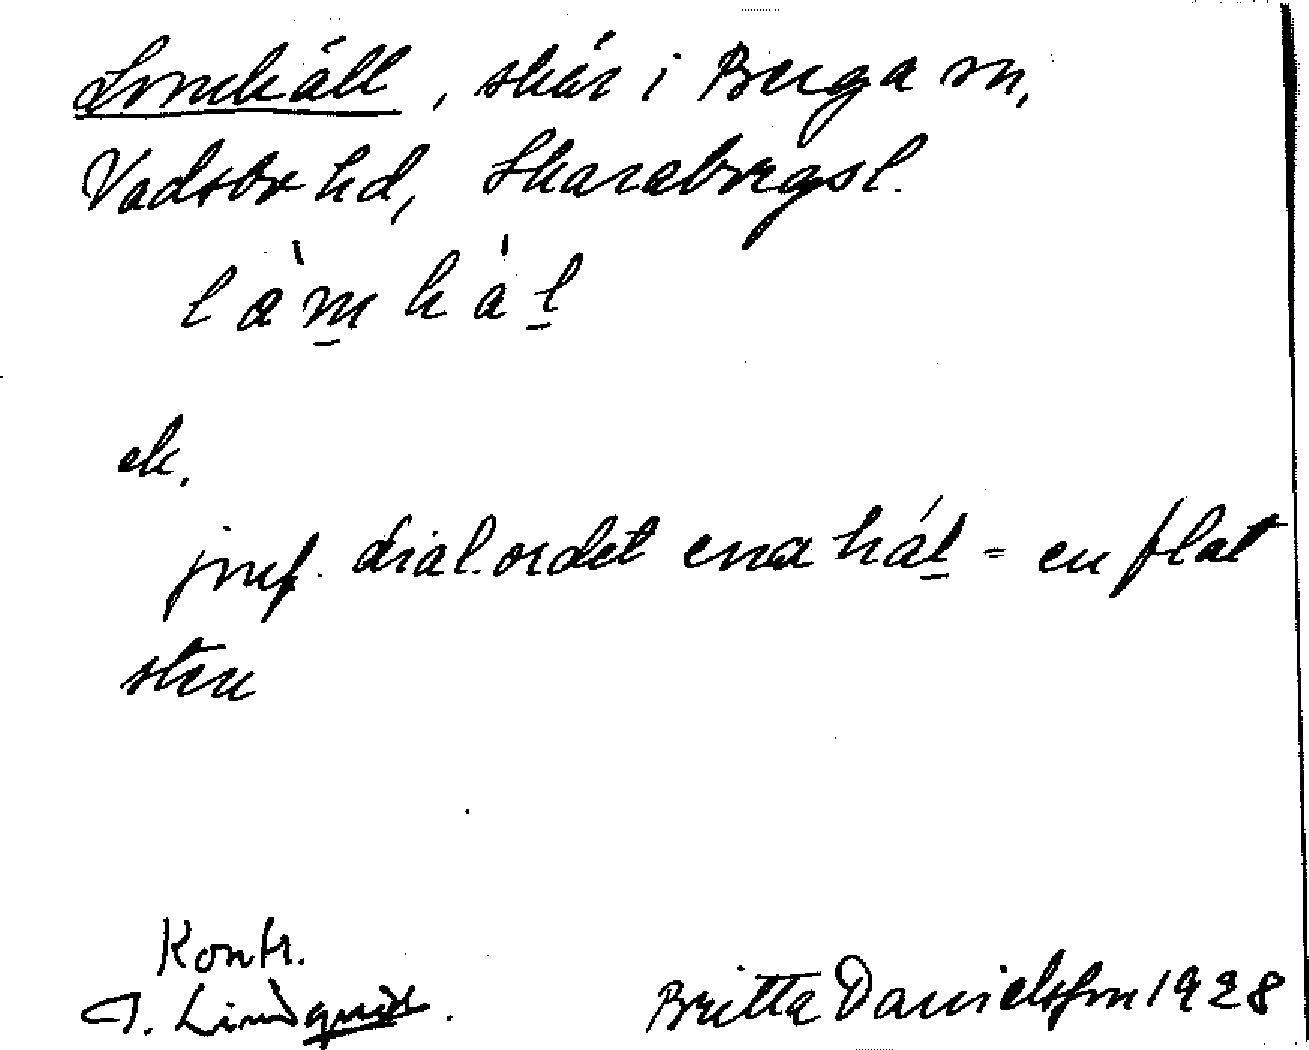 Lomhäll, skär i Berga sn,
Vadsbo hd, Skarabrgsl.
làmhàl
ek.
jmf. dial.ordet ena hál = en flat
sten
Kontr.
I. Lindquist.
Britta Danielsson 1928